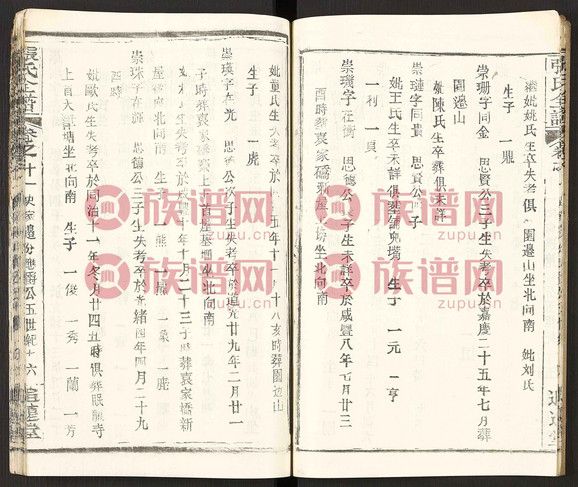 張氏全譜
繼妣姚氏生卒失考俱 園邊山坐北向南 妣刘氏
生子 一鼎
崇珊字同金 思賢公三子生失考卒於嘉慶二十五年七月葬
園邊山
妣陳氏生卒葬俱未詳
崇璉字同貴 思賢公 子
妣王氏生卒未詳俱葬 生子 一元 一亨
一利 一貞
崇璣字在衡 思德公 子生未詳卒於咸豐八年七月廿三
酉時葬袁家橋 坐北向南
追遠堂
張氏全譜
卷之十一
應爵公五世 十六
追遠堂
妣童氏生 卒於 五年十一 十八亥時葬園邊山
生子 一虎
崇瑛字在光 思德公次子生失考卒於道光廿九年二月廿一
子時葬袁家橋 上首屋基 北向南
妣 氏生失考卒於 十年十月二十三子時葬袁家橋新
屋 北向南 生子 一熊 一 一象 一鹿
崇珠字在 思德公三子生失考卒於光緒四年四月二十九
酉時
妣歐氏生失考卒於同治十一年冬月廿四丑時俱葬眼 寺
上首大 坐北向南 生子 一俊 一秀 一蘭 一芳
族谱网
zupu.cn
族谱网
zupu.cn
族谱网
zupu.cn
族谱网
zupu.cn